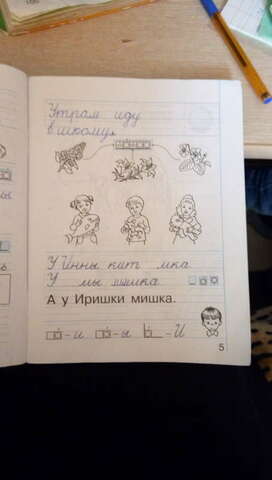 Утром иду
в школу.
У Инны кит мка
У мы мшка
А у Иришки мишка.
-и -ы -И
5